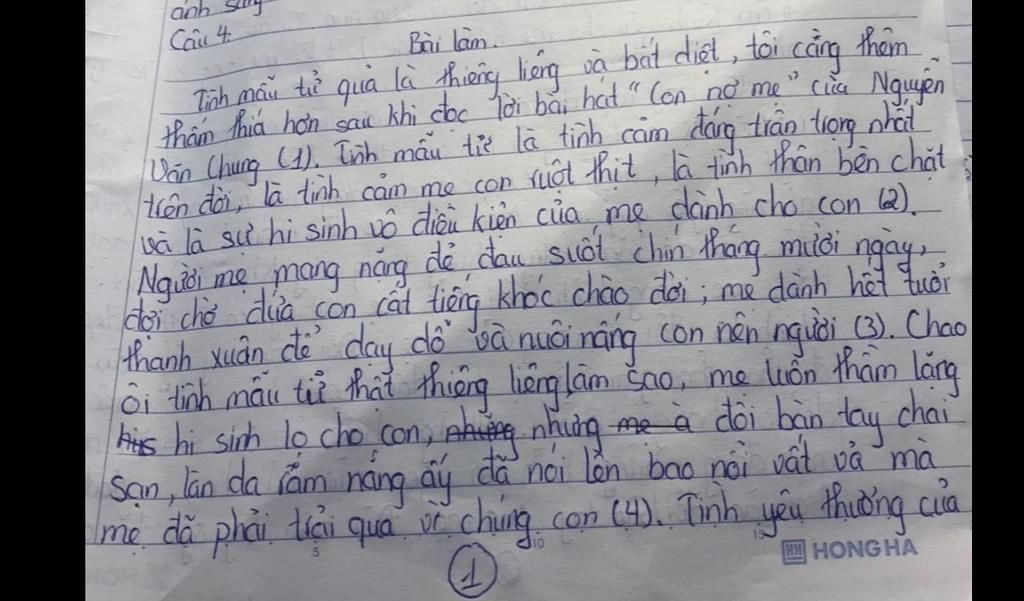 ánh sáng
Câu 4.
Bài làm.
Tình mẫu tử quả là thiêng liêng và bất diệt, tôi càng thêm
thấm thía hơn sau khi đọc lời bài hát "Con nợ mẹ" của Nguyễn
Văn Chung (1). Tình mẫu tử là tình cảm đáng trân trọng nhất
trên đời, là tình cảm mẹ con ruột thịt, là tình thân bền chặt
và là sự hi sinh vô điều kiện của mẹ dành cho con (2).
Người mẹ mang nặng đẻ đau suốt chín tháng mười ngày,
đợi chờ đứa con cất tiếng khóc chào đời; mẹ dành hết tuổi
thanh xuân để dạy dỗ và nuôi nấng con nên người (3). Chao
ôi tình mẫu tử thật thiêng liêng làm sao, mẹ luôn thầm lặng
his hi sinh lo cho con, những nhưng mẹ à đôi bàn tay chai
sạn, làn da rám nắng ấy đã nói lên bao nỗi vất vả mà
mẹ đã phải trải qua vì chúng con (4). Tình yêu thương của
5 10 15
HH HONG HA
1